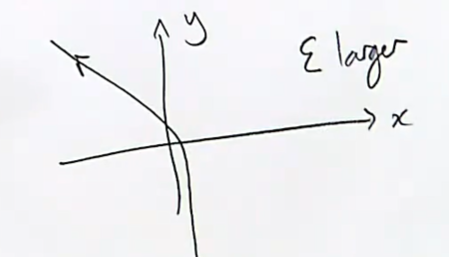 y
ε larger
x